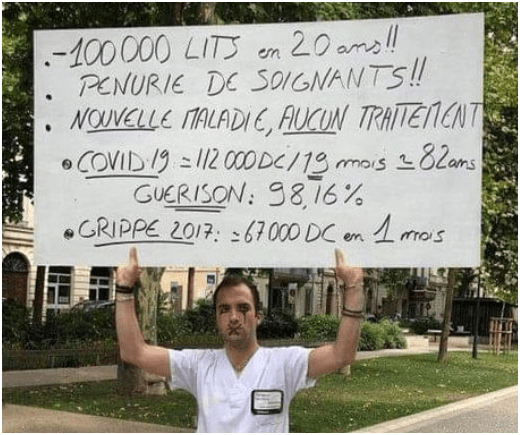 . -100000 LITS en 20 ans!!
. PENURIE DE SOIGNANTS!!
. NOUVELLE MALADIE, AUCUN TRAITEMENT
• COVID.19 = 112 000 DC / 19 mois ≃ 82 ans
GUERISON: 98,16%
• GRIPPE 2017: = 67000 DC en 1 mois